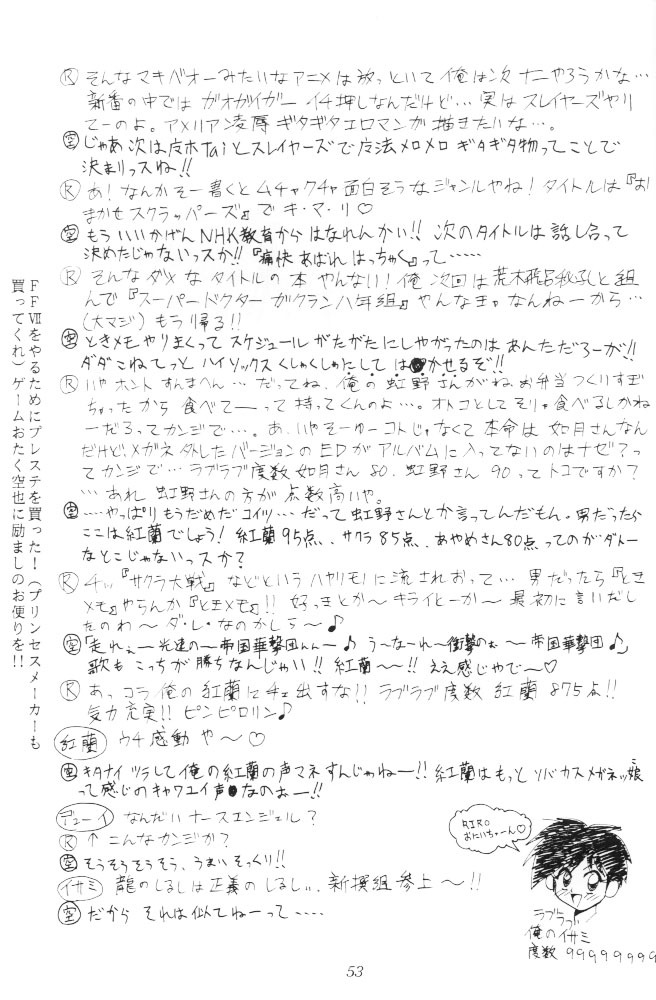 Ⓡ そんなマキバオーみたいなアニメは放っといて俺は次ナニやろうかな…
新番の中ではガオガイガーイチ押しなんだけど…実はスレイヤーズやり
てーのよ。アメリアン凌辱ギタギタエロマンガ描きたいな…。
㊢ じゃあ次は皮ホTaiとスレイヤーズで魔法メロメロギタギタ物ってことで
決まりっスね!!
Ⓡ あ!なんかそー書くとムチャクチャ面白そうなジャンルやね!タイトルは『おじ
まかせスクラッパーズ』でキ・マ・リ♡
もういいかげんNHK教育からはなれんかい!!次のタイトルは話し合って
決めたじゃないっスか!!『痛快あばれはっちゃく』って……
Ⓡ そんなダメなタイトルの本やんない!俺次回は荒木飛呂秋孔と組
んで『スーパードクターがクラン八年組』やんなきゃなんねーから…
(大マジ)もう帰る!!
ときメモやりまくってスケジュールがたがたにしやがったのはあんただろーが!!
ダダこねてっとハイソックスくしゃくしゃにしてはかせるぞ!!
Ⓡ いやホントすんまへん…だってね、俺の虹野さんがねお弁当つくりすぎ
ちゃったから食べてーって持ってくんのよ…。オトコとしてそりゃ食べるしかね
ーだろってカンジで…。あ、いやそーゆーコトじゃなくて本命は如月さんなん
だけど、メガネ外したバージョンのEDがアルバムに入ってないのはナゼ?っ
てカンジで…ラブラブ度数如月さん80、虹野さん90ってトコですか?
…あれ虹野さんの方が点数高いや。
……やっぱりもうだめだコイツ…だって虹野さんとか言ってんだもん。男だったら
ここは紅蘭でしょう!紅蘭95点、サクラ85点、あやめさん80点ってのがダトー
なとこじゃないっスか?
Ⓡ チッ『サクラ大戦』などというハヤリモノに流されおって…男だったら『とき
メモ』やらんか『ときメモ』!!好っきとか〜キライとーか〜最初に言いだし
たのわ〜ダ・レ・なのかしら〜♪
「走れぇー光速の〜帝国華撃団んん〜♪う〜な〜れ〜衝撃のぉ〜帝国華撃団♪」
歌もこっちが勝ちなんじゃい!!紅蘭〜〜!!ええ感じやで〜♡
Ⓡ あっコラ俺の紅蘭にチェ出すな!!ラブラブ度数紅蘭875点!!
気力充実!!ピンピロリン♪
紅蘭 ウチ感動や〜♡
キタナイツラして俺の紅蘭の声マネすんじゃねー!!紅蘭はもっとソバカスメガネッ娘
って感じのキャワエイ声なのぉー!!
デューイ なんだいナースエンジェル?
Ⓡ ↑こんなカンジか?
そうそうそうそう、うまいそっくり!!
イサミ 龍のしるしは正義のしるしぃ、新撰組参上〜!!
だからそれは似てねーって……
RIRO
おにいちゃーん♡
ラブラブ
俺のイサミ
度数999999999
FFⅦをやるためにプレステを買った!(プリンセスメーカーも
買ってくれ)ゲームおたく空也に励ましのお便りを!!
53